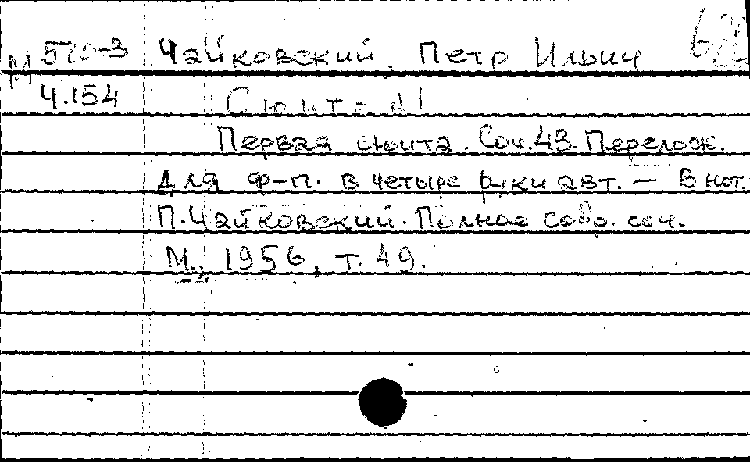 М 570-3 Чайковский, Петр Ильич
Ч.154 Сюита №1
Первая сюита. Соч. 43. Перелож.
для ф-п. в четыре руки авт. — В нот.
П. Чайковский. Полное собр. соч.
М., 1956, т. 49.